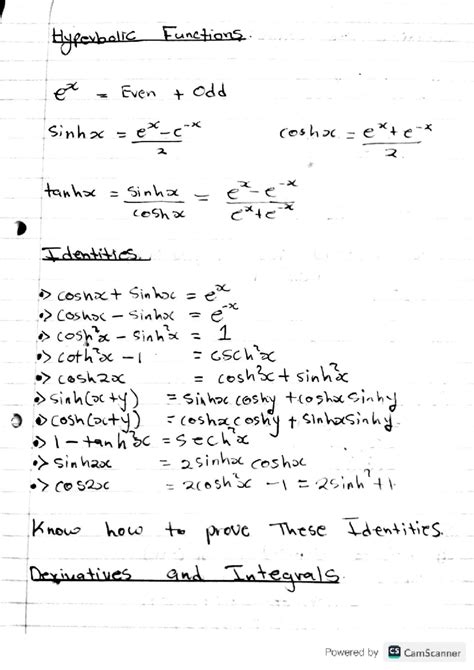 Hyperbolic Functions.
e^x = Even + Odd
Sinhx = (e^x - e^-x)/2    coshx = (e^x + e^-x)/2
tanhx = Sinhx/coshx = (e^x - e^-x)/(e^x + e^-x)
Identities.
•> coshx + Sinhx = e^x
•> Coshx - Sinhx = e^-x
•> cosh²x - Sinh²x = 1
•> coth²x - 1 = csch²x
•> cosh2x = cosh²x + sinh²x
•> sinh(x+y) = sinhx coshy + coshx sinhy
•> cosh(x+y) = coshx coshy + sinhx sinhy.
•> 1 - tanh²x = Sech²x
•> Sinh2x = 2sinhx coshx
•> cos2x = 2cosh²x - 1 = 2sinh² + 1
Know how to prove These Identities.
Derivatives and Integrals.
Powered by CS CamScanner